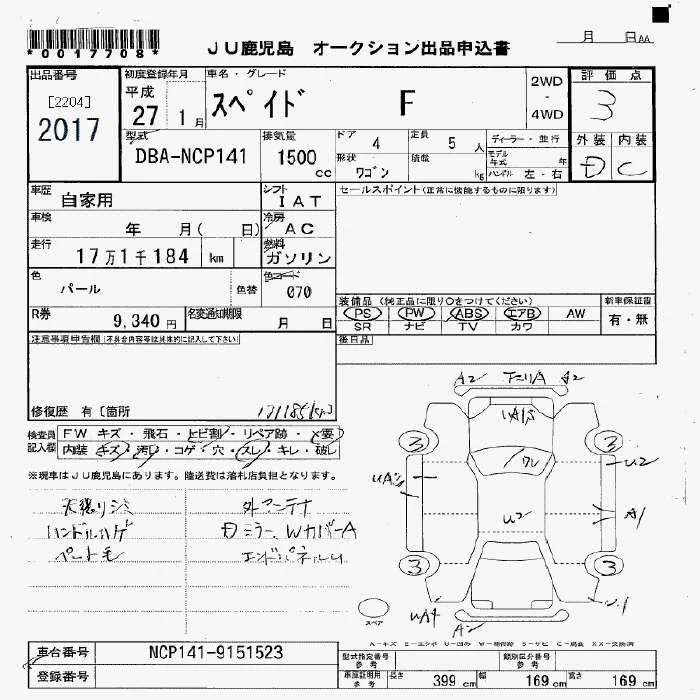 *0017708*
JU鹿児島 オークション出品申込書
月 日AA
出品番号
[2204]
2017
初度登録年月
平成
27 1月
車名・グレード
スペイド F
2WD
-
4WD
評価点
3
型式
DBA-NCP141
排気量
1500 cc
ドア 4
定員 5 人
形状 ワゴン
積載 kg
ディーラー・並行
モデル年式 年
ハンドル 左・右
外装 内装
D C
車歴 自家用
シフト IAT
セールスポイント(正常に機能するものに限ります)
車検 年 月( 日)
冷房 AC
走行 17万1千184 km
燃料 ガソリン
色 パール
色替
色コード 070
装備品(純正品に限り○をつけてください)
PS PW ABS エアB AW
SR ナビ TV カワ
新車保証書
有・無
R券 9,340円
名変通知期限 月 日
後日品
注意事項申告欄(不具合内容等は具体的に記入して下さい)
修復歴 有〔箇所
171185km
検査員記入欄
FW キズ・飛石・ヒビ割・リペア跡・×要
内装 キズ・汚れ・コゲ・穴・スレ・キレ・破レ
※現車はJU鹿児島にあります。陸送費は落札店負担となります。
天張りシミ
ハンドルハゲ
ペット毛
外アンテナ
Dミラー、WカバーA
エンドパネルU
A2 下マリA A2
3 3
U2
U2
A1
3 3
UA4
A2
スペア
A-キズ E-エクボ U-凹み W-補修跡 S-サビ C-腐食 XX-交換済
車台番号 NCP141-9151523
登録番号
型式指定番号 参考
類別区分番号 参考
車庫証明用 参考 長さ 399 cm 幅 169 cm 高さ 169 cm